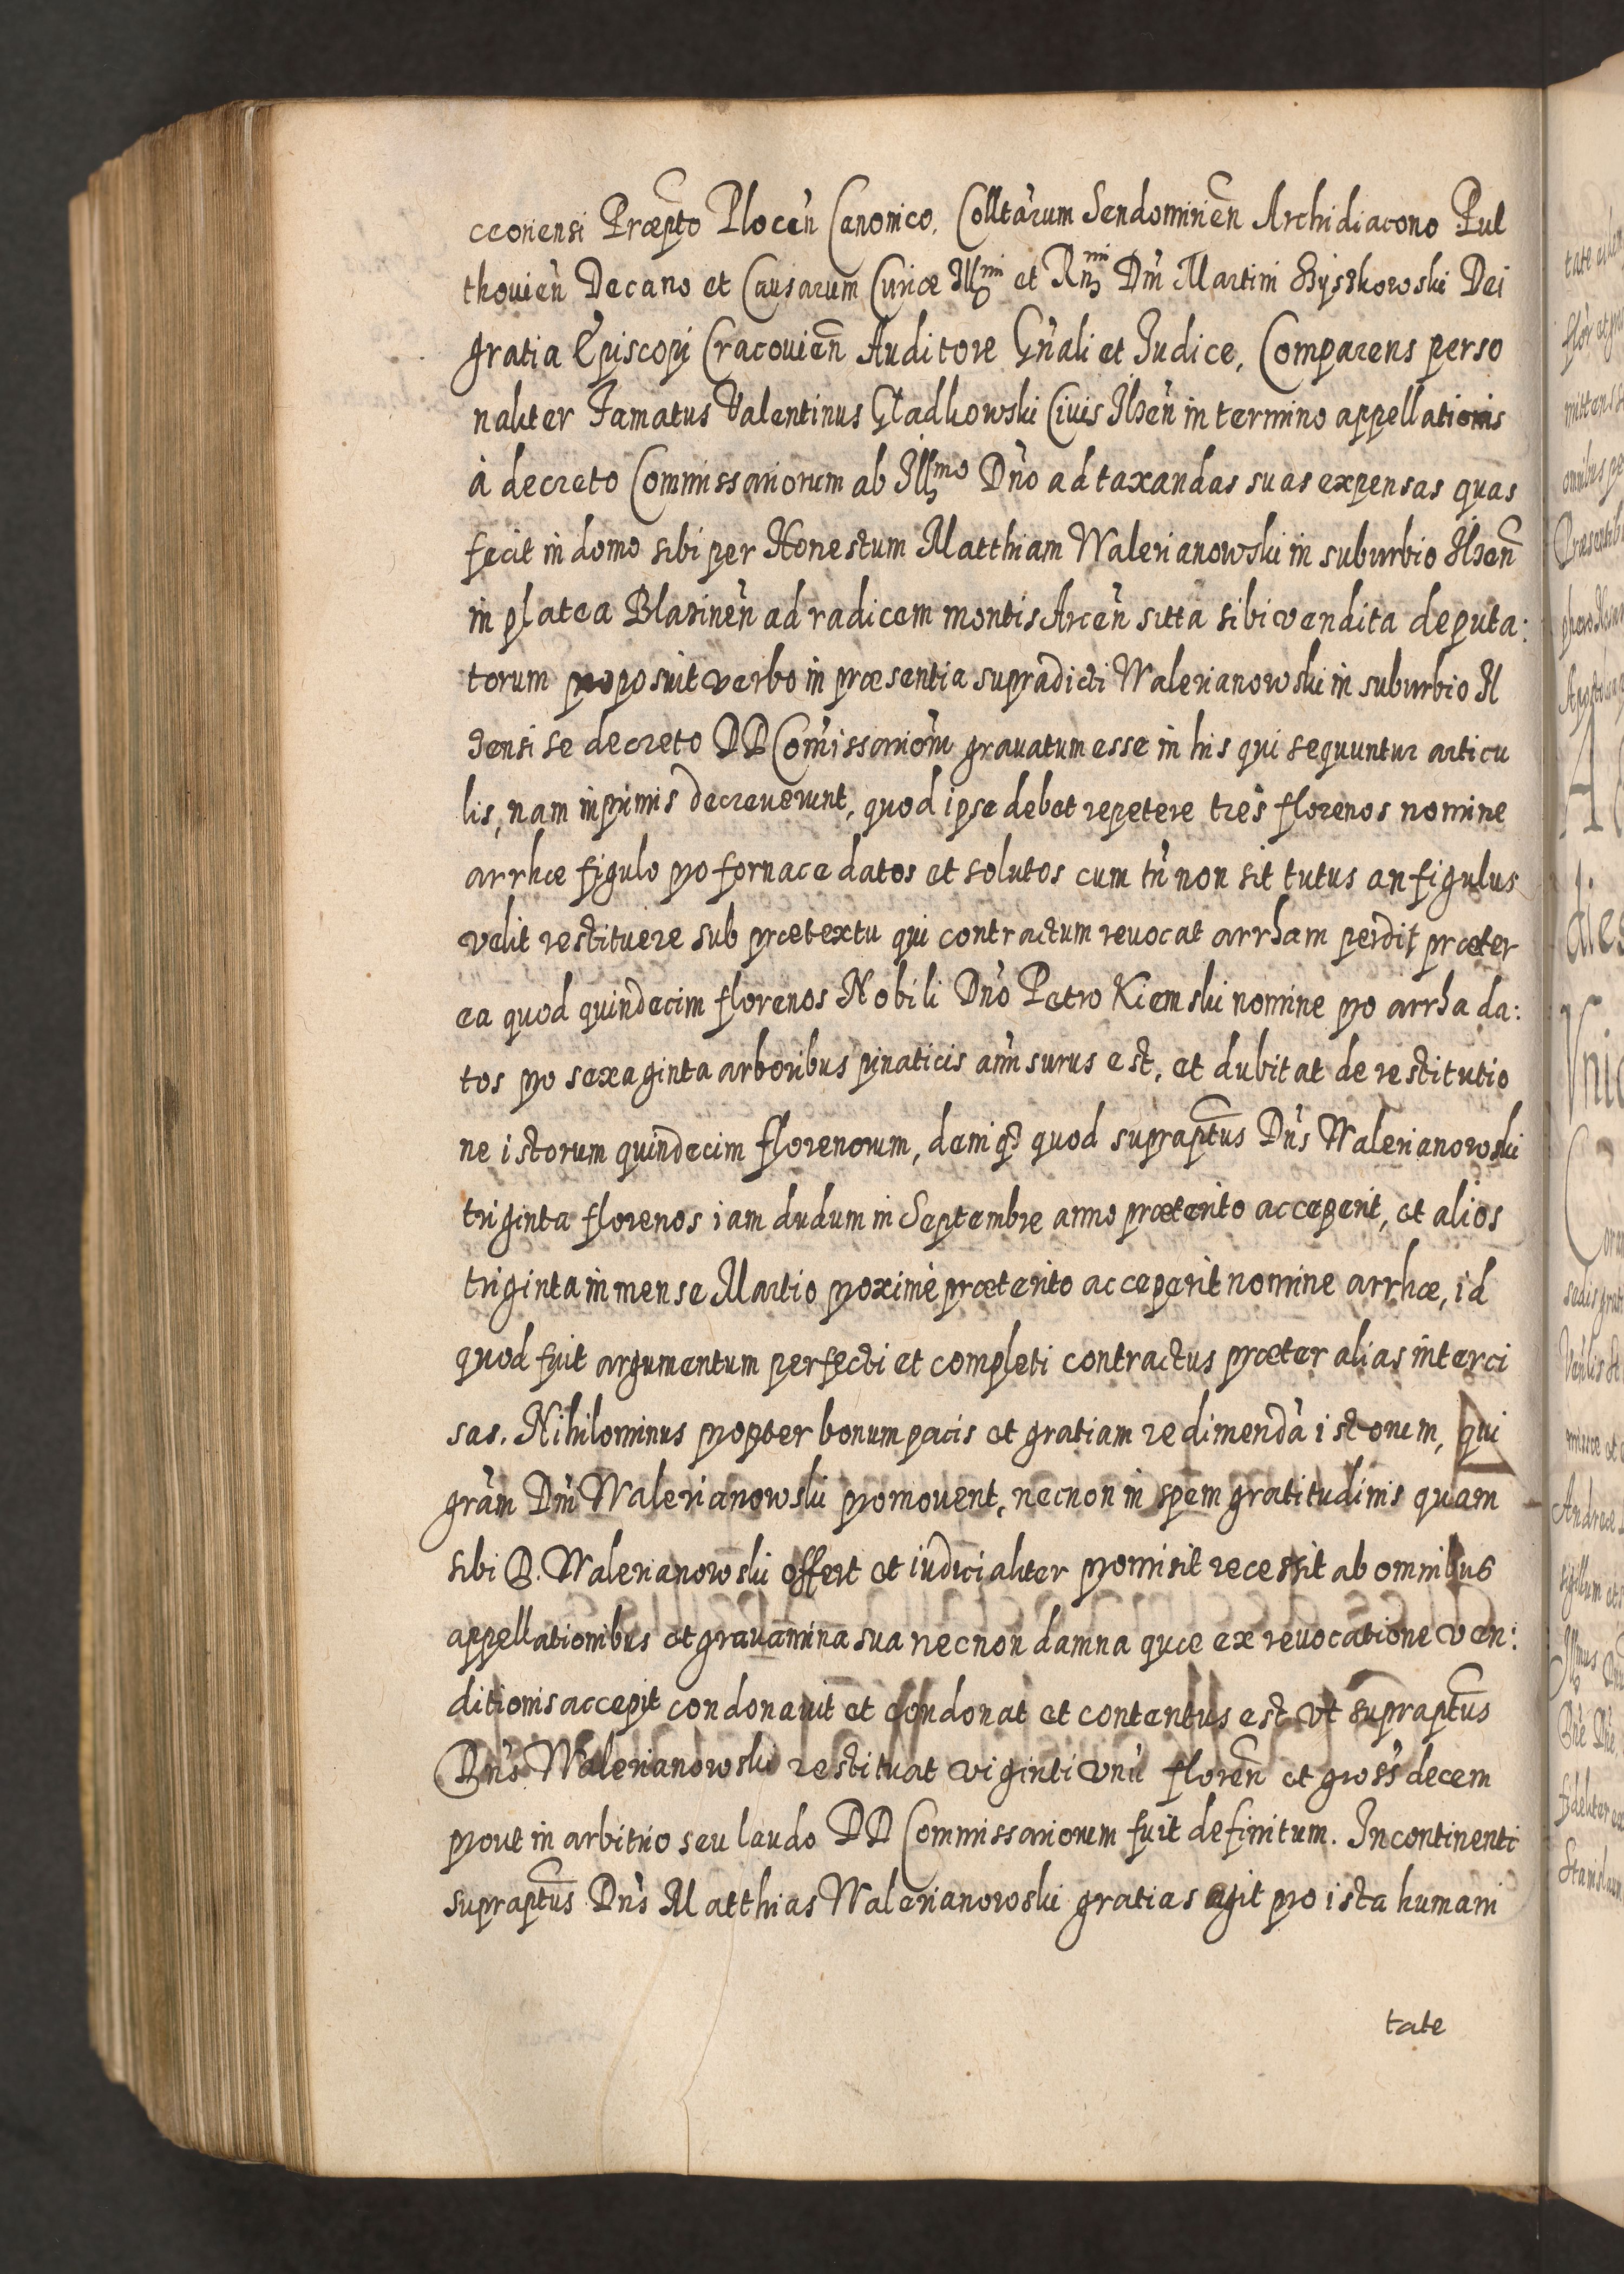 ceoriensi Præpto Plocen̄ Canonico, Colltarum Sendominen̄ Archidiacono Pul
thouien̄ Decano et Causarum Curiæ Illmi et Rndmi Dn̄i Martini Szyszkowski Dei
gratia Episcopi Cracouien̄ Auditore Gn̄ali et Judice, Comparens perso
naliter Famatus Valentinus Gladkowski Ciuis Ilzen̄ in termino appellationis
à decreto Commissariorum ab Illmo Dn̄o ad taxandas suas expensas quas
fecit in domo sibi per Honestum Matthiam Walerianowski in suburbio Ilzen̄
in platea Blasinen̄ ad radicem montis Arcen̄ sitta sibi vendita deputa:
torum proposuit verbo in præsentia supradicti Walerianowski in suburbio Il
zensi se decreto DD Com̄issariom̄ grauatum esse in his qui sequuntur articu
lis, nam inprimis decreuerunt, quod ipse debet repetere tres florenos nomine
arrhæ figulo pro fornace datos et solutos cum tn̄ non sit tutus an figulus
velit restituere sub prætextu qui contractum reuocat arrham perdit præter
ea quod quindecim florenos Nobili Dn̄o Petro Kiemski nomine pro arrha da:
tos pro sexaginta arboribus pinaticis am̄surus est, et dubitat de restitutio
ne istorum quindecim florenorum, deniq3 quod suprap̄tus Dn̄s Walerianowski
triginta florenos iam dudum in Septembre anno præterito acceperit, et alios
triginta in mense Martio proximè præterito acceperit nomine arrhæ, id
quod fuit argumentum perfecti et completi contractus præter alias interci
sas. Nihilominus propter bonum pacis et gratiam redimendà istorum, qui
grām Dn̄i Walerianowski promouent, necnon in spem gratitudinis quam
sibi D. Walerianowski offert et iudicialiter promisit recessit ab omnibus
appellationibus et grauamina sua necnon damna quæ ex reuocatione ven:
ditionis accepit condonauit et condonat et contentus est vt suprap̄tus
Dn̄s Walerianowski restituat viginti vnū floren̄ et gross̄ decem
prout in arbitrio seu laudo DD Commissariorum fuit definitum. Incontinenti
suprap̄tus Dn̄s Matthias Walerianowski gratias agit pro ista humani
tate